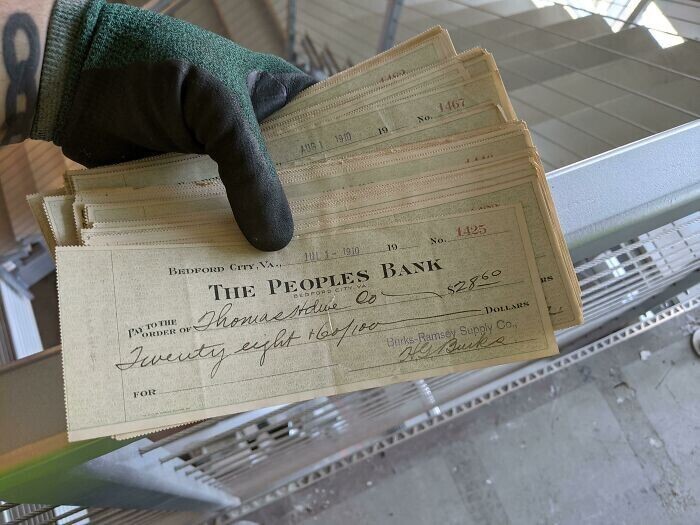 8
1467
AUG 1 1910 19 No.
Bedford City, Va., JUL 5 - 1910 19 No. 1425
The Peoples Bank
BEDFORD CITY, VA.
Pay to the order of Thomas Hdwe Co $28 60
Twenty eight + 60/100 Dollars
Burks-Ramsey Supply Co.,
Burks
For